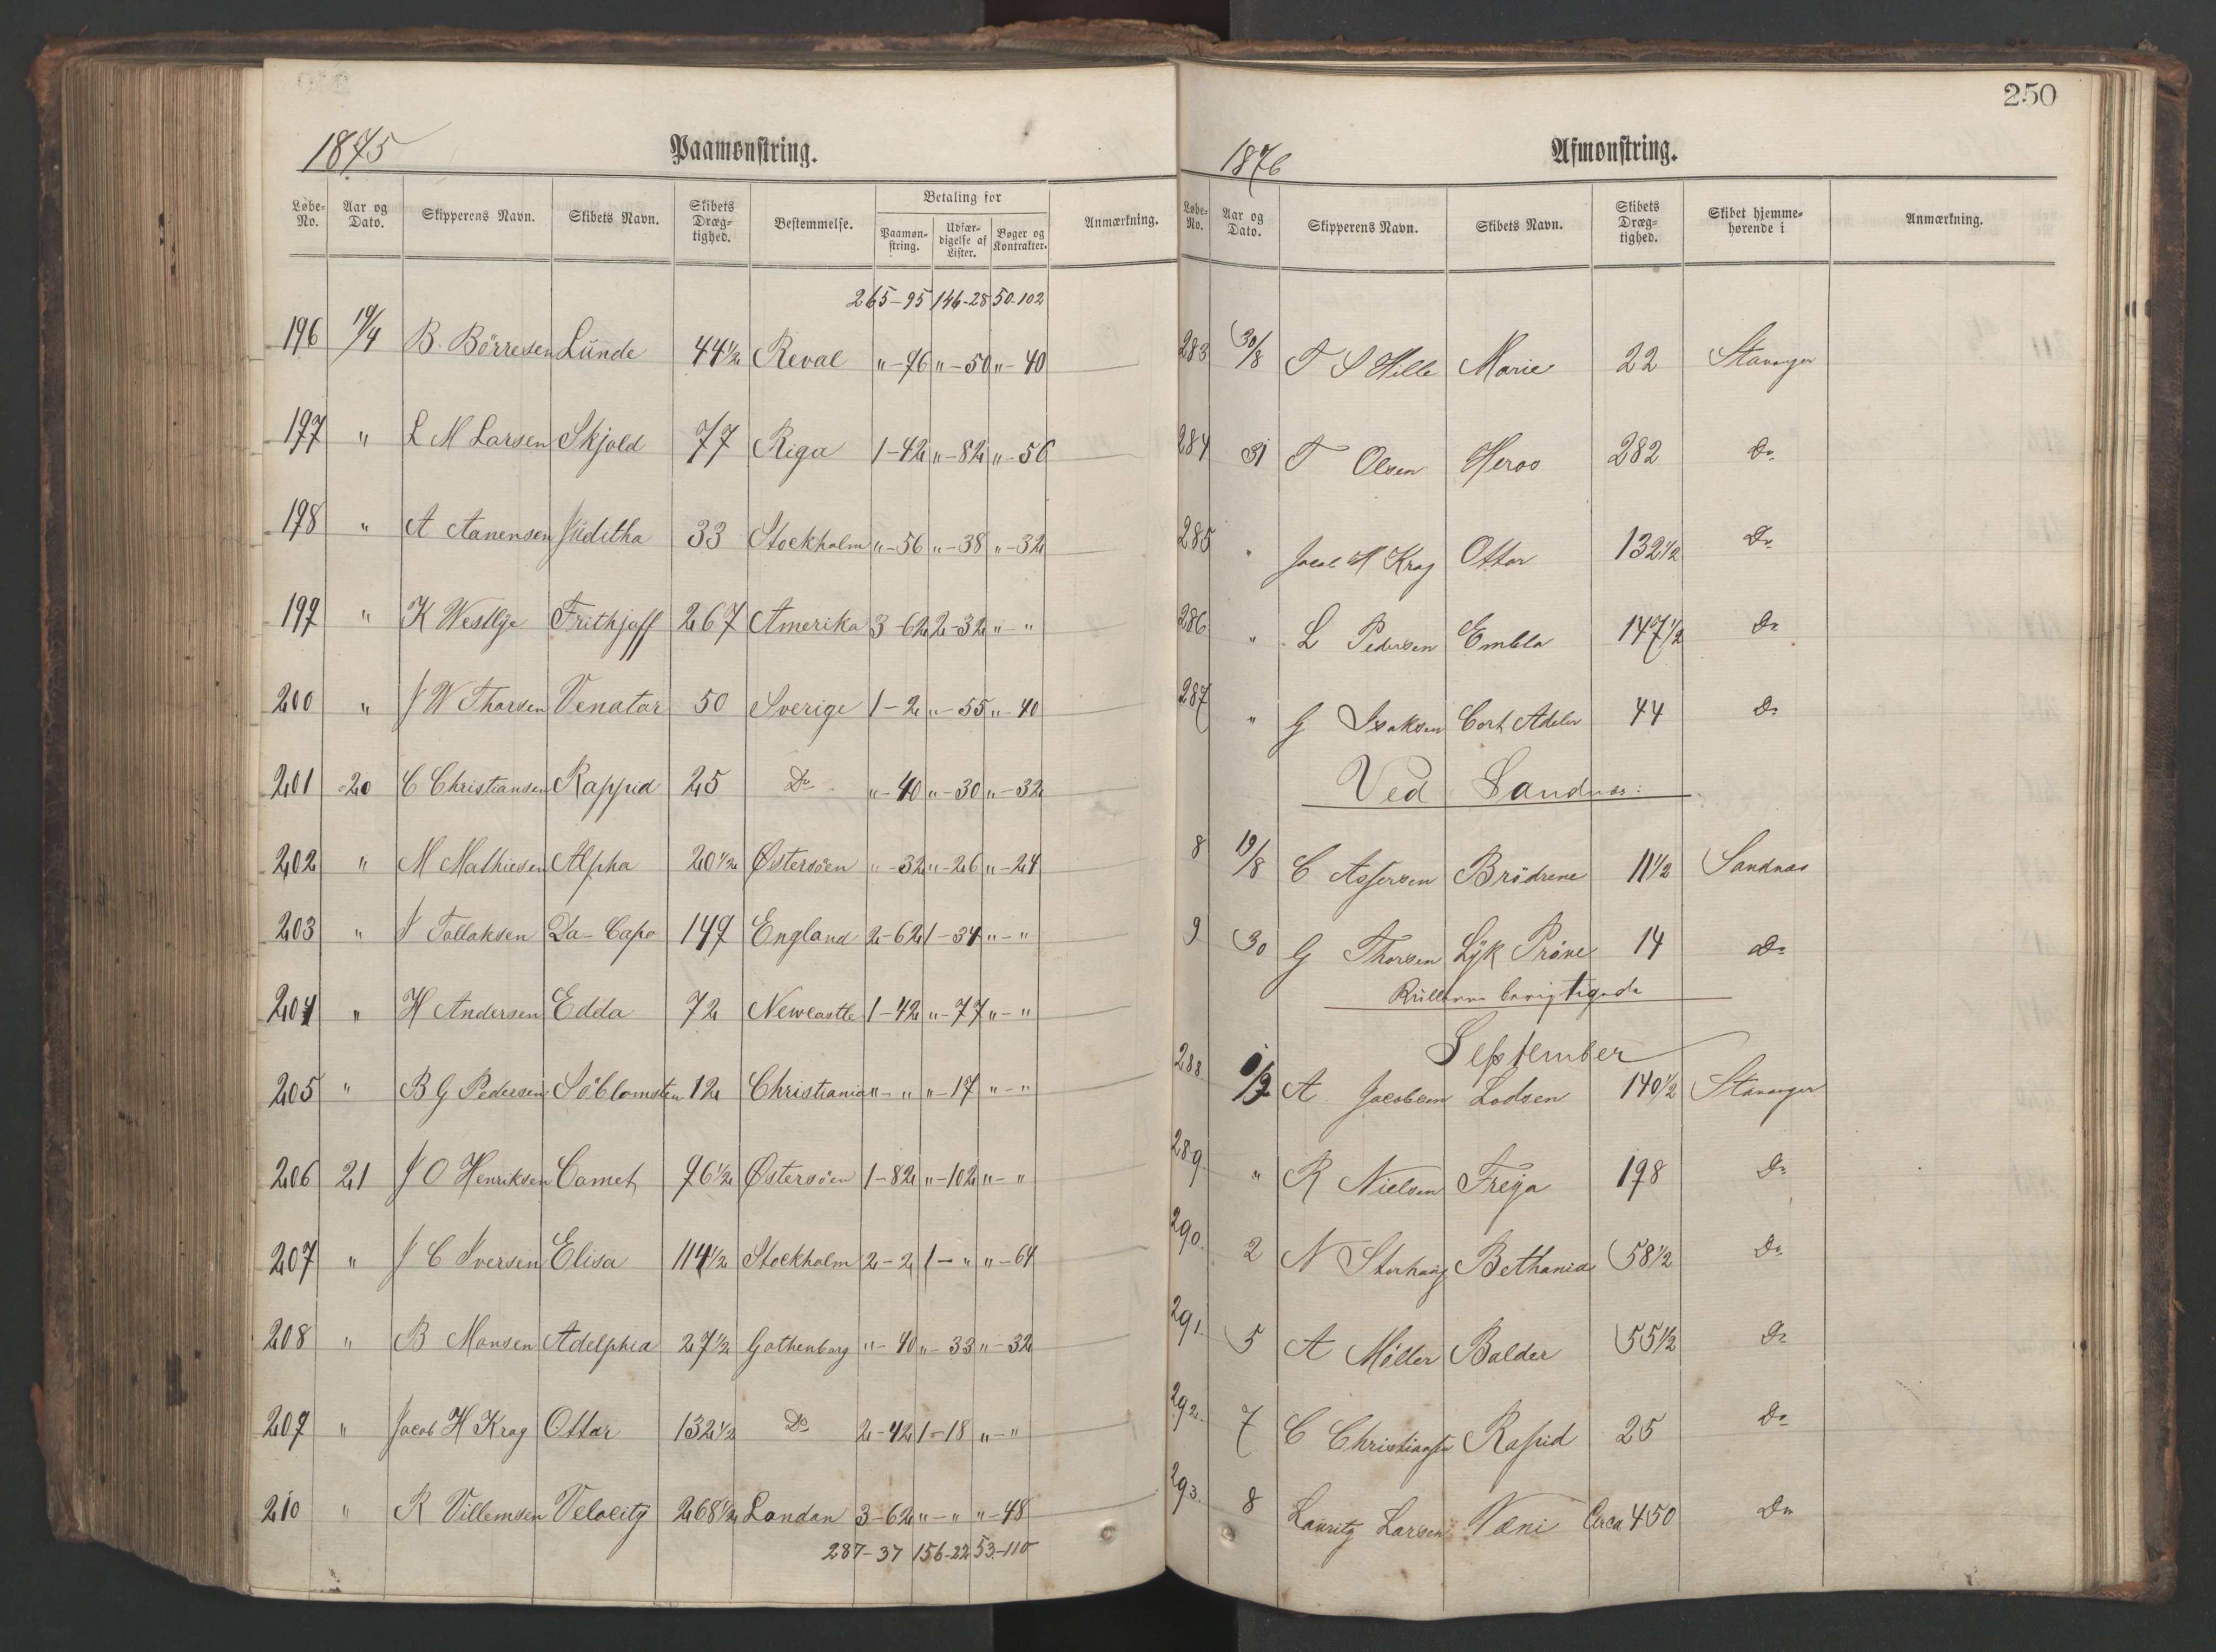 1875
Paamønstring.
Løbe-No. Aar og Dato. Skipperens Navn. Skibets Navn. Skibets Dræg-tighed. Bestemmelse. Betaling for Paamøn-string. Udfær-digelse af Lister. Bøger og Kontrakter. Anmærkning.
265-95 146-28 50-102
196 19/4 B. Börresen Lunde 44 1/2 Reval "-76 "-50 "-40
197 " L M Larsen Skjold 77 Riga 1-42 "-82 "-56
198 " A Aanensen Juditha 33 Stockholm "-56 "-38 "-32
199 " K Westlye Frithjoff 267 Amerika 3-62 2-32 "-"
200 " J W Thorsen Venator 50 Sverige 1-2 "-55 "-40
201 20 C Christiansen Rappid 25 Do "-40 "-30 "-32
202 " M Mathiesen Alpha 20 1/2 Østersöen "-32 "-26 "-24
203 " J Tollaksen Da-Capo 149 England 2-62 1-34 "-"
204 " H Andersen Edda 72 Newcastle 1-42 "-77 "-"
205 " B G Pedersen Söblomsten 12 Christiania "-" "-17 "-"
206 21 J O Henriksen Comet 96 1/2 Østersöen 1-82 "-102 "-"
207 " J C Iversen Elisa 114 1/2 Stockholm 2-2 1-" "-64
208 " B Monsen Adelphia 27 1/2 Gothenborg "-40 "-33 "-32
209 " Jacob H Krag Ottar 132 1/2 Do 2-42 1-18 "-"
210 " R Villemsen Velocity 268 1/2 London 3-62 "-" "-48
287-37 156-22 53-110
250
1876
Afmønstring.
Løbe-No. Aar og Dato. Skipperens Navn. Skibets Navn. Skibets Dræg-tighed. Skibet hjemme-hørende i Anmærkning.
283 30/8 T S Hille Marie 22 Stavanger
284 31 T Olsen Heros 282 Do
285 " Jacob H Krag Ottar 132 1/2 Do
286 " L Pedersen Embla 147 1/2 Do
287 " G Isaksen Cort Adeler 44 Do
Ved Sandnæs:
8 19/8 C Assersen Brödrene 11 1/2 Sandnæs
9 30 G Thorsen Lyk Pröve 14 Do
Rullerne berigtigede
September
288 1/9 A. Jacobsen Lodsen 140 1/2 Stavanger
289 " R Nielsen Freya 198 Do
290 2 N Storhaug Bethania 58 1/2 Do
291 5 A Möller Balder 55 1/2 Do
292 7 C Christiansen Rapid 25 Do
293 8 Lauritz Larsen Væni Circa 450 Do